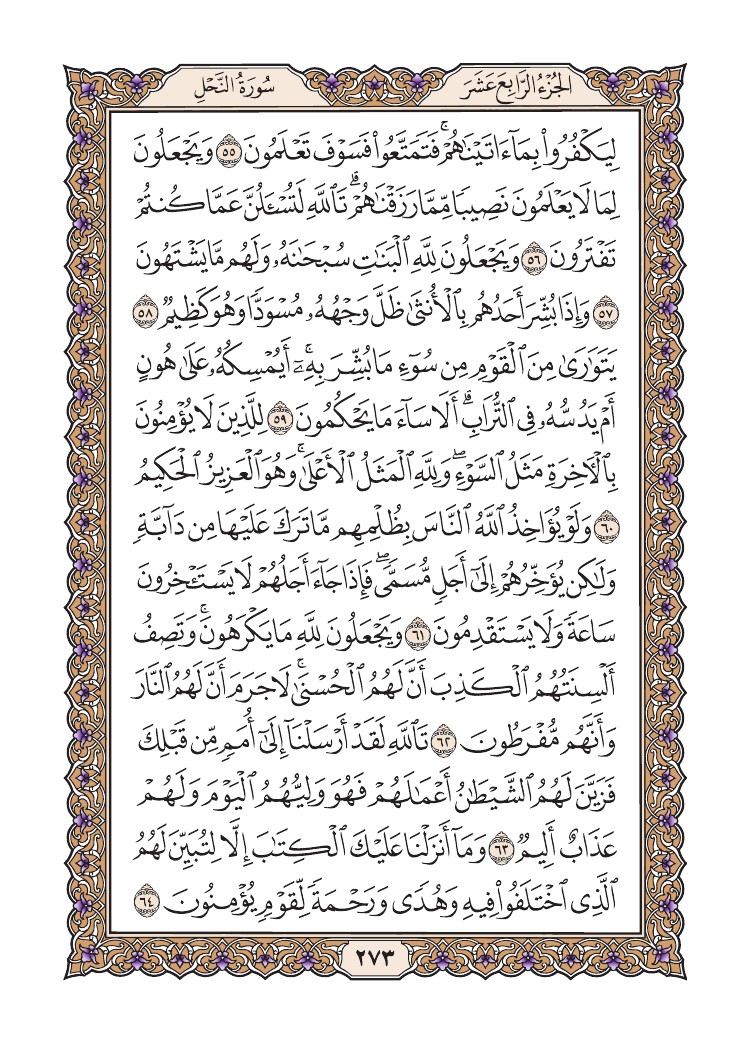 الجُزْءُ الرَّابِعَ عَشَرَ
سُورَةُ النَّحْلِ
لِيَكْفُرُواْ بِمَآ ءَاتَيْنَٰهُمْۚ فَتَمَتَّعُواْ فَسَوْفَ تَعْلَمُونَ ٥٥ وَيَجْعَلُونَ
لِمَا لَا يَعْلَمُونَ نَصِيبٗا مِّمَّا رَزَقْنَٰهُمْۗ تَٱللَّهِ لَتُسْـَٔلُنَّ عَمَّا كُنتُمْ
تَفْتَرُونَ ٥٦ وَيَجْعَلُونَ لِلَّهِ ٱلْبَنَٰتِ سُبْحَٰنَهُۥ وَلَهُم مَّا يَشْتَهُونَ
٥٧ وَإِذَا بُشِّرَ أَحَدُهُم بِٱلْأُنثَىٰ ظَلَّ وَجْهُهُۥ مُسْوَدّٗا وَهُوَ كَظِيمٞ ٥٨
يَتَوَٰرَىٰ مِنَ ٱلْقَوْمِ مِن سُوٓءِ مَا بُشِّرَ بِهِۦٓۚ أَيُمْسِكُهُۥ عَلَىٰ هُونٍ
أَمْ يَدُسُّهُۥ فِي ٱلتُّرَابِۗ أَلَا سَآءَ مَا يَحْكُمُونَ ٥٩ لِلَّذِينَ لَا يُؤْمِنُونَ
بِٱلْأٓخِرَةِ مَثَلُ ٱلسَّوْءِۖ وَلِلَّهِ ٱلْمَثَلُ ٱلْأَعْلَىٰۚ وَهُوَ ٱلْعَزِيزُ ٱلْحَكِيمُ
٦٠ وَلَوْ يُؤَاخِذُ ٱللَّهُ ٱلنَّاسَ بِظُلْمِهِم مَّا تَرَكَ عَلَيْهَا مِن دَآبَّةٖ
وَلَٰكِن يُؤَخِّرُهُمْ إِلَىٰٓ أَجَلٖ مُّسَمّٗىۖ فَإِذَا جَآءَ أَجَلُهُمْ لَا يَسْتَـْٔخِرُونَ
سَاعَةٗ وَلَا يَسْتَقْدِمُونَ ٦١ وَيَجْعَلُونَ لِلَّهِ مَا يَكْرَهُونَۚ وَتَصِفُ
أَلْسِنَتُهُمُ ٱلْكَذِبَ أَنَّ لَهُمُ ٱلْحُسْنَىٰۚ لَا جَرَمَ أَنَّ لَهُمُ ٱلنَّارَ
وَأَنَّهُم مُّفْرَطُونَ ٦٢ تَٱللَّهِ لَقَدْ أَرْسَلْنَآ إِلَىٰٓ أُمَمٖ مِّن قَبْلِكَ
فَزَيَّنَ لَهُمُ ٱلشَّيْطَٰنُ أَعْمَٰلَهُمْ فَهُوَ وَلِيُّهُمُ ٱلْيَوْمَ وَلَهُمْ
عَذَابٌ أَلِيمٞ ٦٣ وَمَآ أَنزَلْنَا عَلَيْكَ ٱلْكِتَٰبَ إِلَّا لِتُبَيِّنَ لَهُمُ
ٱلَّذِي ٱخْتَلَفُواْ فِيهِ وَهُدٗى وَرَحْمَةٗ لِّقَوْمٖ يُؤْمِنُونَ ٦٤
٢٧٣